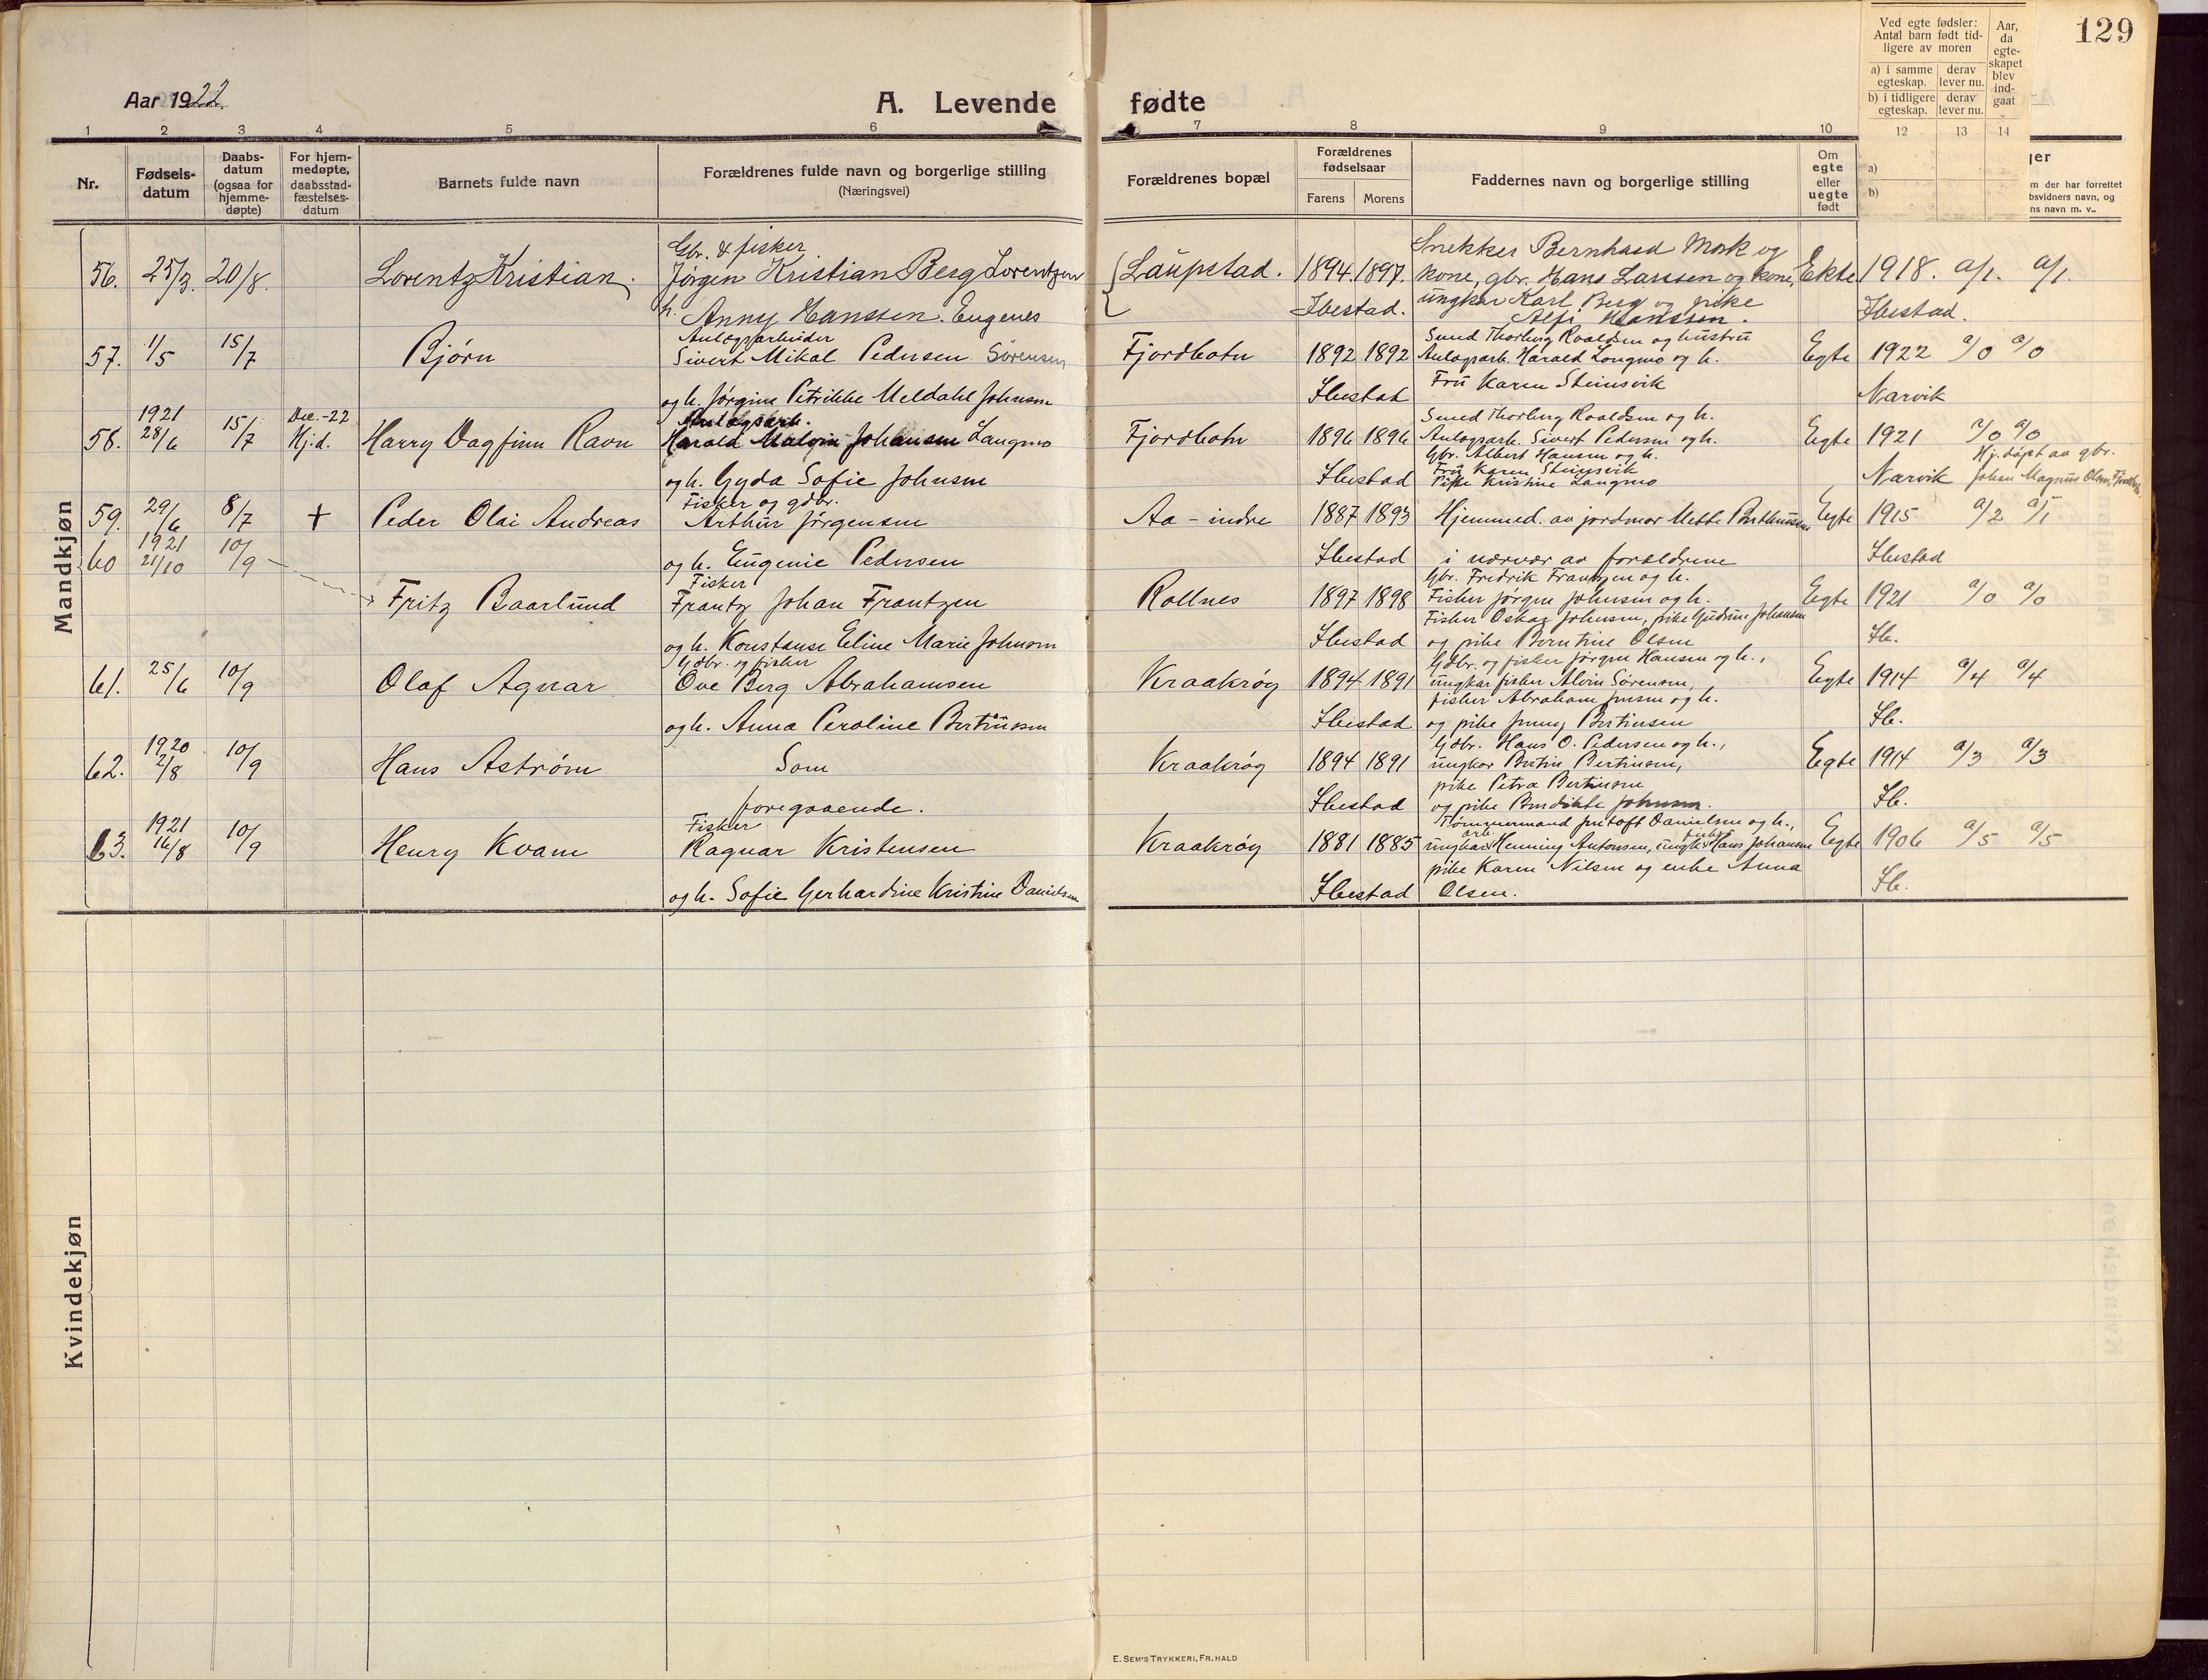 129
Aar 1922.
A. Levende fødte
1 2 3 4 5 6 7 8 9 10
Nr.
Fødsels-
datum
Daabs-
datum
(ogsaa for
hjemme-
døpte)
For hjem-
medøpte,
daabsstad-
fæstelses-
datum
Barnets fulde navn
Forældrenes fulde navn og borgerlige stilling
(Næringsvei)
Forældrenes bopæl
Forældrenes
fødselsaar
Farens Morens
Faddernes navn og borgerlige stilling
Om
egte
eller
uegte
født
Ved egte fødsler:
Antal barn født tid-
ligere av moren
a) i samme
egteskap.
derav
lever nu.
b) i tidligere
egteskap.
derav
lever nu.
Aar,
da
egte-
skapet
blev
ind-
gaat
12 13 14
a)
b)
jer
m der har forrettet
bsvidners navn, og
ns navn m. v..
Mandkjøn
Gbr. & fisker
56. 25/3. 20/8. Lorentz Kristian. Jørgen Kristian Berg Lorentzen
h. Anny Hanssen. Eugenes
Laupstad. 1894. 1897.
Ibestad.
Snekker Bernhard Mork og
kone, gbr. Hans Larssen og kone,
ungkar Karl Berg og pike
Alfi Hanssen.
Ekte 1918. a/1. a/1.
Ibestad.
Anlægsarbeider
57. 1/5 15/7 Bjørn Sivert Mikal Pedersen Sørensen
og h. Jørgine Petrikke Meldahl Johnsen
Fjordbotn 1892 1892
Ibestad
Smed Thorberg Roaldsen og hustru
Anlægsarb. Harald Langmo og h.
Fru Karen Steinsvik
Egte 1922 a/0 a/0
Narvik
1921
58. 28/6 15/7 Dec.-22
Hj.d. Harry Dagfinn Ravn
Anlægsarb.
Harald Malvin Johansen Langmo
og h. Gyda Sofie Johnsen
Fjordbotn 1896 1896
Ibestad
Smed Thorberg Roaldsen og h.
Anlægsarb. Sivert Pedersen og h.
Gbr. Albert Hansen og h.
Fru Karen Steinsvik
Pike Kristine Langmo
Egte 1921 a/0 a/0
Hj.døpt av gbr.
Narvik Johan Magnus Olsen, Fjordbotn
Fisker og gdbr.
59. 29/6 8/7 + Peder Olai Andreas Arthur Jørgensen
og h. Eugenie Pedersen
Aa - indre 1887 1893
Ibestad
Hjemmed. av jordmor Mette Berthinsen
i nærvær av forældrene
Egte 1915 a/2 a/1
Ibestad
1921
60 21/10 10/9
Fritz Baarlund
Fisker
Frantz Johan Frantzen
og h. Konstanse Eline Marie Johnsen
Rollnes 1897 1898
Ibestad
Gbr. Fredrik Frantzen og h.
Fisker Jørgen Johnsen og h.
Fisker Oskar Johnsen, pike Gudrun Johansen
og pike Berntine Olsen
Egte 1921 a/0 a/0
Ib.
Gdbr. og fisker
61. 25/6 10/9 Olaf Agnar Ove Berg Abrahamsen
og h. Anna Peroline Bertinsen
Kraakrøy 1894 1891
Ibestad
Gdbr. og fisker Jørgen Hansen og h.,
ungkar fisker Alvin Sørensen,
fisker Abraham Jensen og h.
og pike Jenny Bertinsen
Egte 1914 a/4 a/4
Ib.
1920
62. 2/8 10/9 Hans Astrøm Som
foregaaende.
Kraakrøy 1894 1891
Ibestad
Gdbr. Hans O. Pedersen og h.,
ungkar Bertin Bertinsen,
pike Petra Bertinsen
og pike Bendikte Johnsen.
Egte 1914 a/3 a/3
Ib.
1921
63. 16/8 10/9 Henry Kvam
Fisker
Ragnar Kristensen
og h. Sofie Gerhardine Kristine Danielsen
Kraakrøy 1881 1885
Ibestad
Tømmermand Jentoft Danielsen og h.,
ungkar arb. Henning Antonsen, ungk. fisker Hans Johansen
pike Karen Nilsen og enke Anna
Olsen.
Egte 1906 a/5 a/5
Ib.
Kvindekjøn
E. SEM'S TRYKKERI, FR.HALD